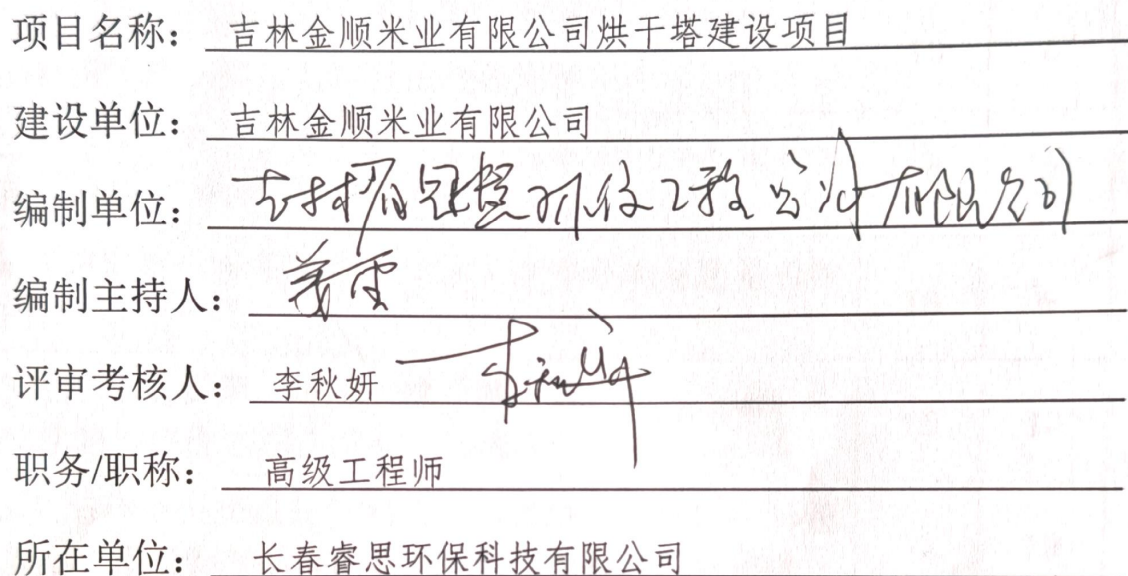 项目名称: 吉林金顺米业有限公司烘干塔建设项目
建设单位: 吉林金顺米业有限公司
编制单位: 吉林省 环保工程 有限公司
编制主持人: 姜雪
评审考核人: 李秋妍
职务/职称: 高级工程师
所在单位: 长春睿思环保科技有限公司